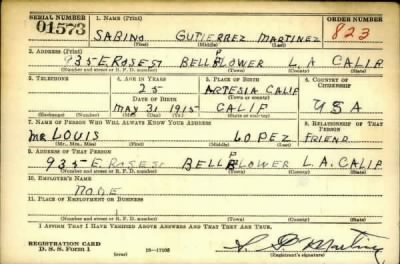 SERIAL NUMBER 1. NAME (Print) ORDER NUMBER
01573 SABINO GUTIERREZ MARTINEZ 823
(First) (Middle) (Last)
2. ADDRESS (Print)
935 E ROSE ST BELLFLOWER L.A CALIF
(Number and street or R. F. D. number) (Town) (County) (State)
3. TELEPHONE 4. AGE IN YEARS 5. PLACE OF BIRTH 6. COUNTRY OF CITIZENSHIP
25 ARTESIA CALIF
DATE OF BIRTH (Town or county)
MAY 31 1915 CALIF. USA
(Exchange) (Number) (Mo.) (Day) (Yr.) (State or country)
7. NAME OF PERSON WHO WILL ALWAYS KNOW YOUR ADDRESS 8. RELATIONSHIP OF THAT PERSON
MR LOUIS LOPEZ FRIEND
(Mr., Mrs., Miss) (First) (Middle) (Last)
9. ADDRESS OF THAT PERSON
935 E. ROSE ST BELLFLOWER L.A. CALIF
(Number and street or R. F. D. number) (Town) (County) (State)
10. EMPLOYER'S NAME
NONE
11. PLACE OF EMPLOYMENT OR BUSINESS
(Number and street or R. F. D. number) (Town) (County) (State)
I AFFIRM THAT I HAVE VERIFIED ABOVE ANSWERS AND THAT THEY ARE TRUE.
REGISTRATION CARD
D. S. S. Form 1 (over) 16-17105 (Registrant's signature)